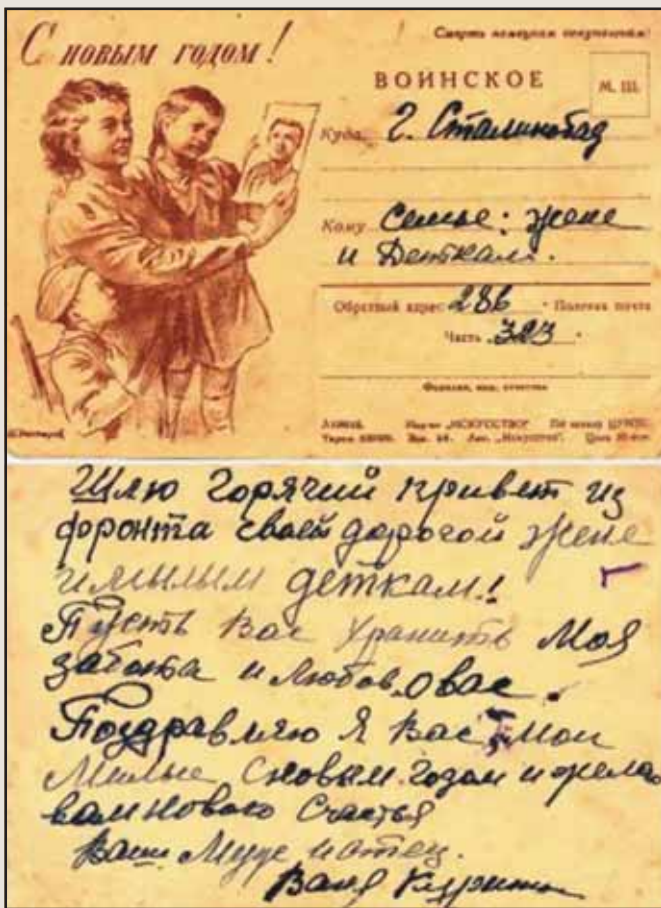 С НОВЫМ ГОДОМ!
Смерть немецким оккупантам!
ВОИНСКОЕ
М. Ш.
Куда г. Сталинобад
Кому Семье: жене
и Деткам.
Обратный адрес 286 Полевая почта
Часть 323
Фамилия, имя, отчество
„ИСКУССТВО"
Шлю горячий привет из
фронта своей дорогой жене
и милым деткам!
Пусть Вас хранить Моя
забота и любов о вас.
Поздравляю Я Вас Мои
Милые с новым годом и желаю
вам нового счастья
Ваш Муж и отец.
Ваня